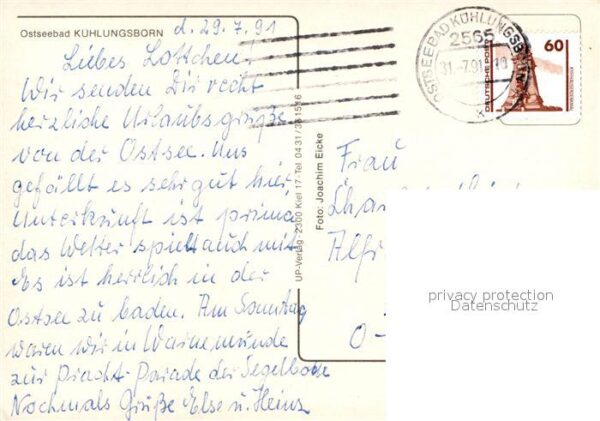 Ostseebad KÜHLUNGSBORN
d. 29.7.91
Liebes Lottchen!
Wir senden Dir recht
herzliche Urlaubsgrüße
von der Ostsee. Uns
gefällt es sehr gut hier,
Unterkunft ist prima
das Wetter spielt auch mit
Es ist herrlich in der
Ostsee zu baden. Am Sonntag
waren wir in Warnemünde
zur Pracht Parade der Segelboote
Nochmals Grüße Else u. Heinz
UP-Verlag · 2300 Kiel 17 · Tel. 0431/361516
Foto: Joachim Eicke
OSTSEEBAD KÜHLUNGSBORN
2565
31.-7.91
DEUTSCHE POST
60
Frau
Char
Alfr
O-
privacy protection
Datenschutz